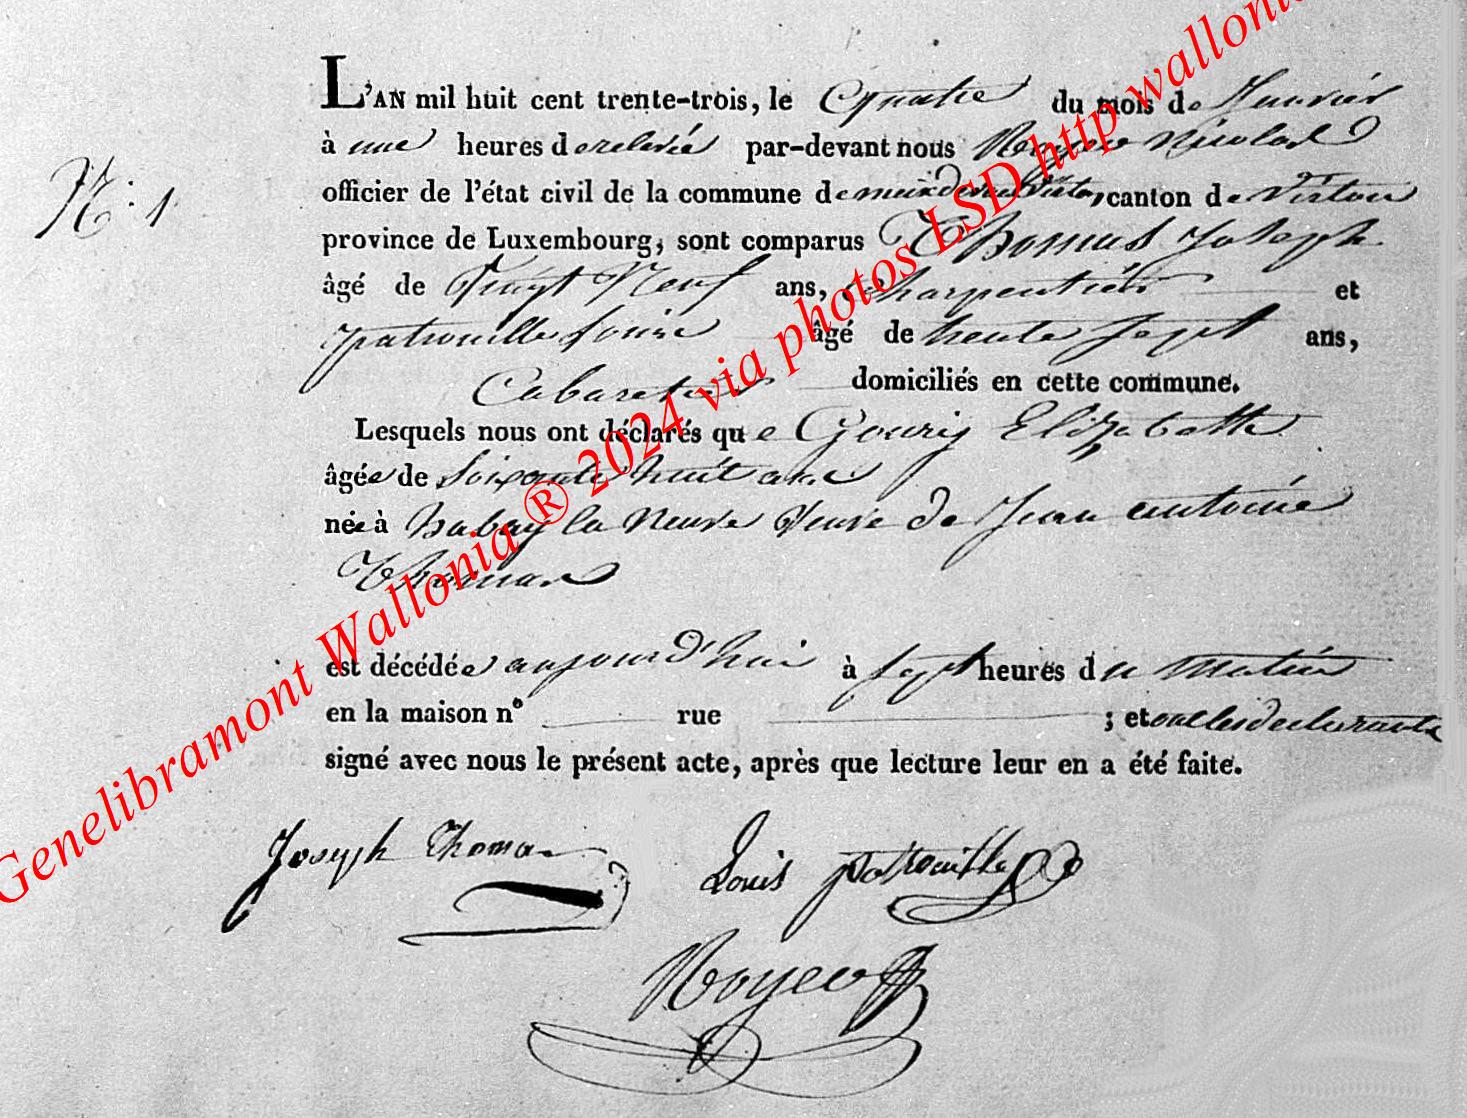 L'AN mil huit cent trente-trois, le Quatre du mois de Janvier
à une heures de relevée par-devant nous Noyer Nicolas
officier de l'état civil de la commune de meix devant Virton, canton de Virton
province de Luxembourg, sont comparus Thomas Joseph
âgé de Vingt Neuf ans, Charpentier et
patrouille Louis âgé de trente sept ans,
Cabaretier domiciliés en cette commune.
Lesquels nous ont déclarés que Gouris Elizabette
âgée de Soixante huit ans
née à habay la Neuve Veuve de Jean antoine
Thomas
est décédée aujourd'hui à sept heures du Matin
en la maison n° rue ; et ont les declarants
signé avec nous le présent acte, après que lecture leur en a été faite.
N.° 1
Joseph Thomas Louis patrouille
Genelibramont Wallonia ® 2024 via photos LSD http wallonia